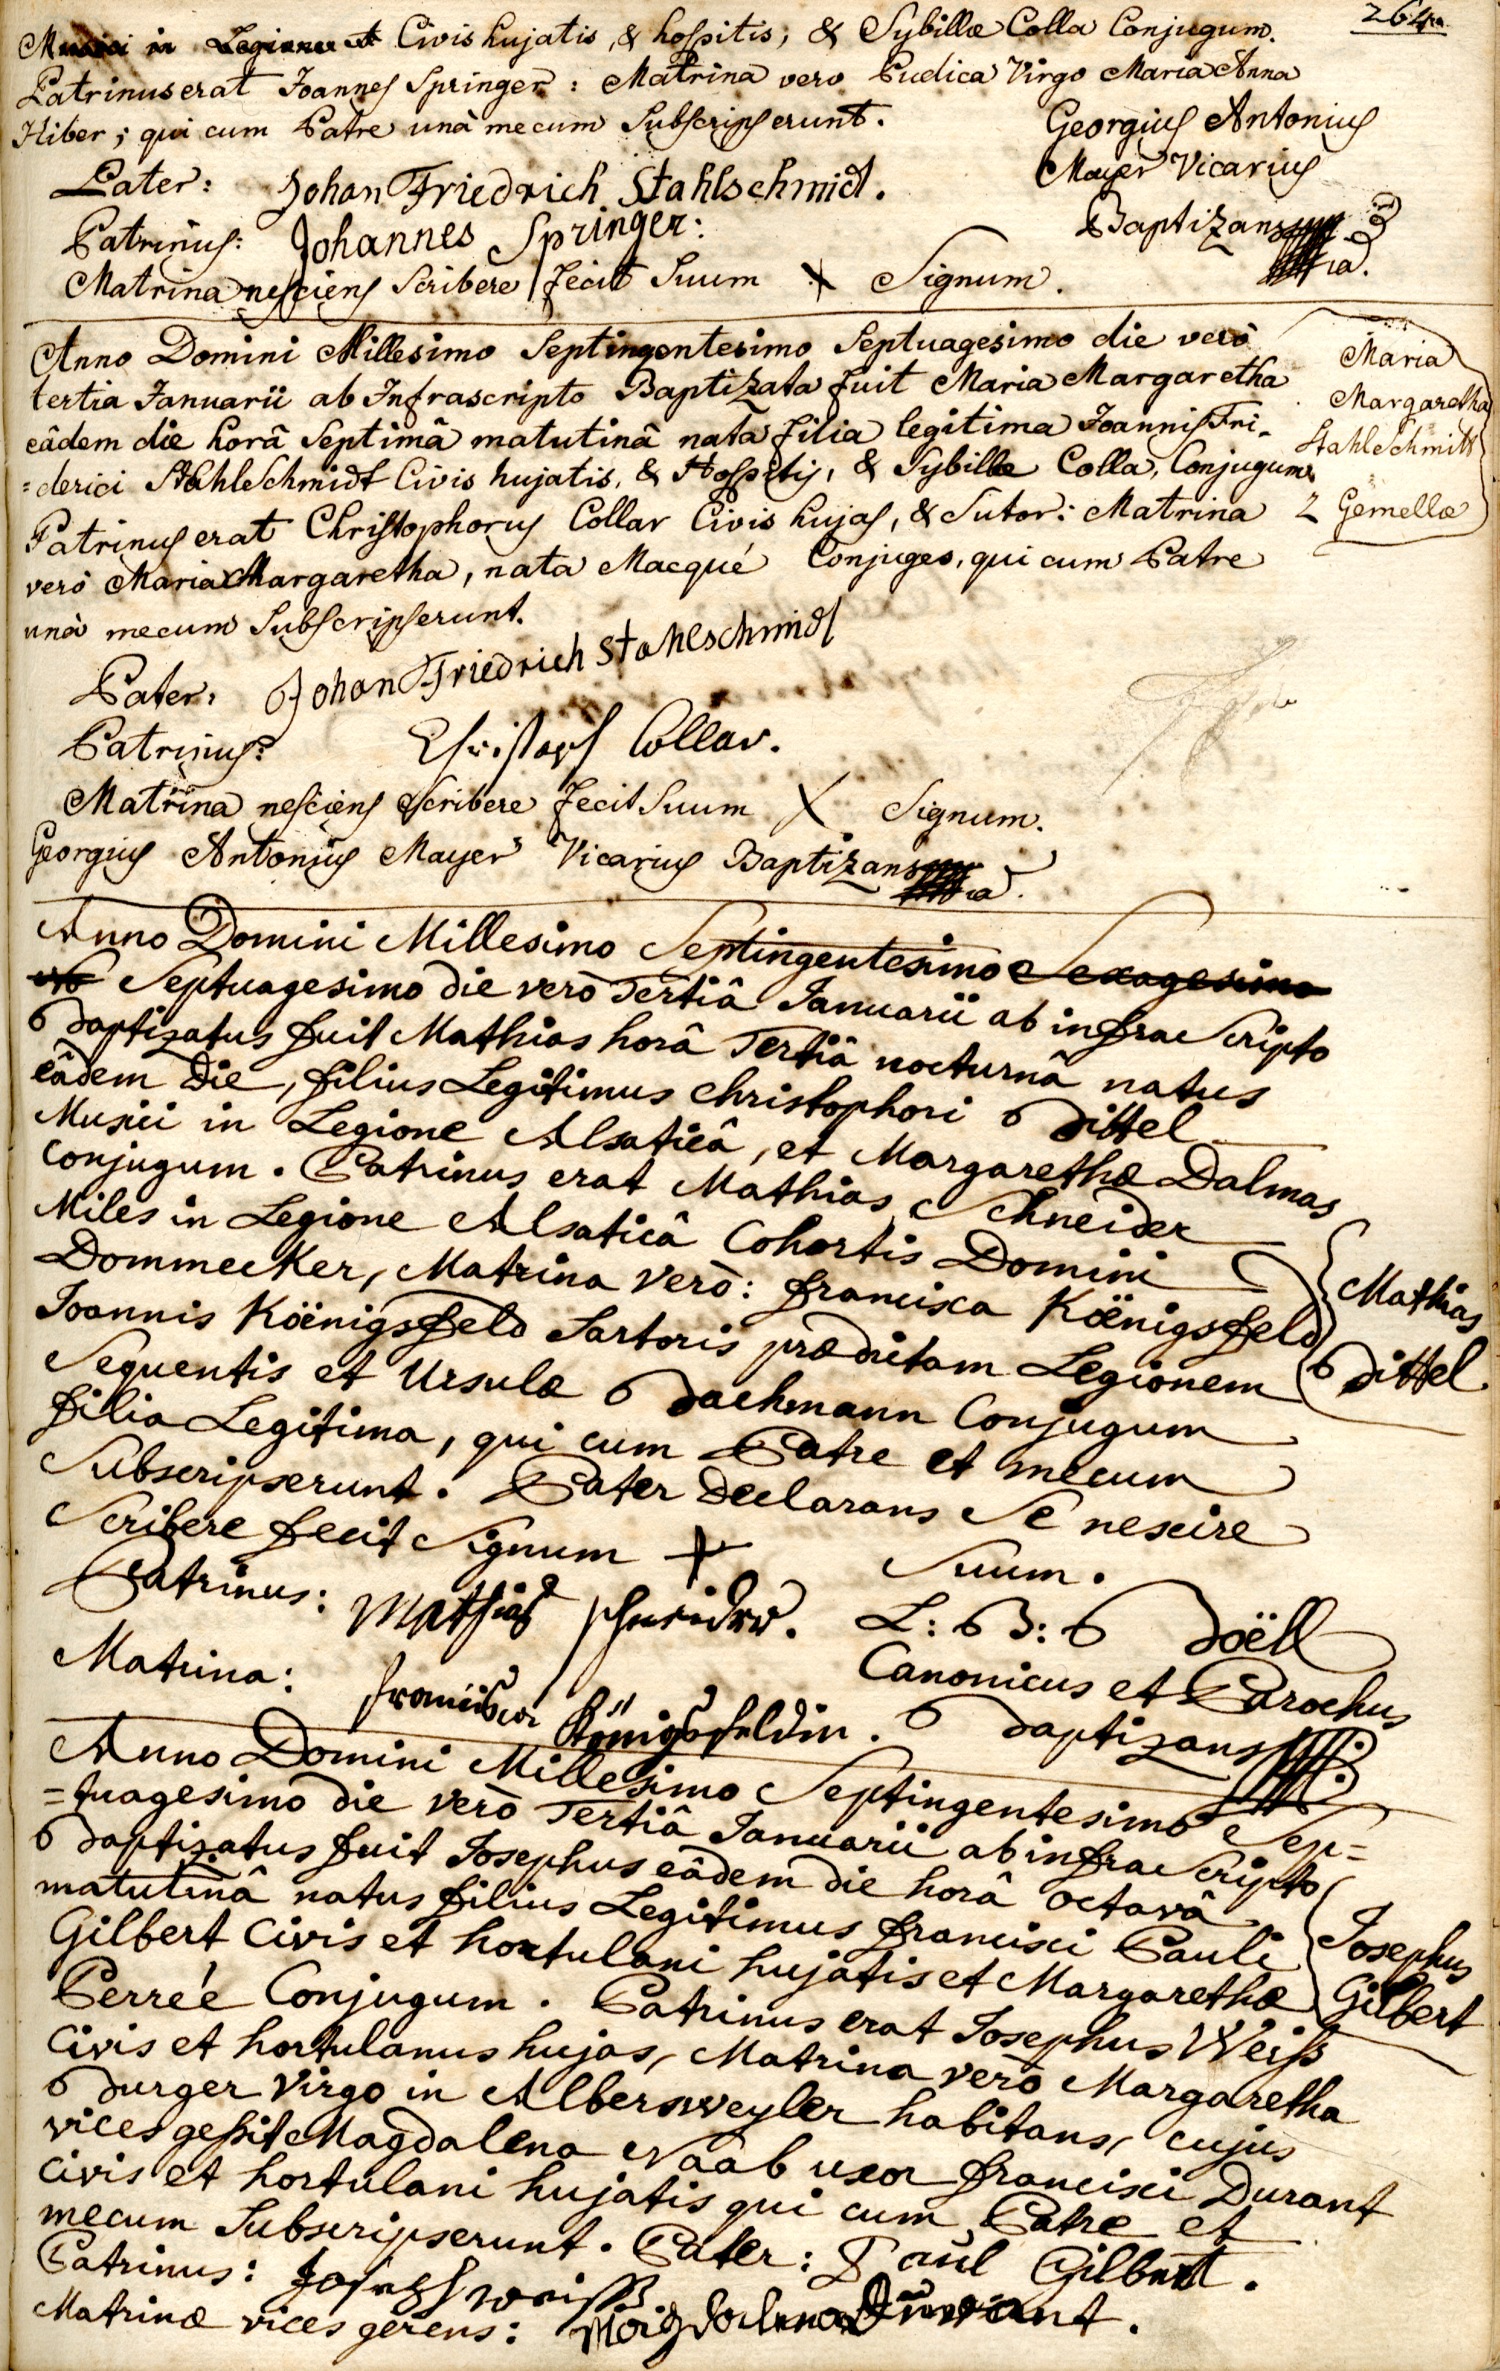 264
Civis hujatis, & hospitis, & Sybillæ Colla Conjugum.
Patrinus erat Joannes Springer: Matrina vero Pudica Virgo Maria Anna
Hiber; qui cum Patre unà mecum Subscripserunt.
Georgius Antonius
Mayer Vicarius
Baptizans
Pater: Johan Friedrich Stahlschmidt.
Patrinus: Johannes Springer:
Matrina nesciens Scribere fecit Suum X Signum.
Anno Domini Millesimo Septingentesimo Septuagesimo die verò
tertia Januarii ab Infrascripto Baptizata fuit Maria Margaretha
eâdem die horâ Septimâ matutinâ nata filia legitima Joannis Fri-
=derici StahleSchmidt Civis hujatis, & Hospitis, & Sybillæ Colla, Conjugum.
Patrinus erat Christophorus Collar Civis hujas, & Sutor: Matrina
verò Maria Margaretha, nata Macqué Conjuges, qui cum Patre
unà mecum Subscripserunt.
Maria
Margaretha
StahleSchmitt
2 Gemellæ
Pater: Johan Friedrich Stahlschmidt
Patrinus: Christoph Collar.
Matrina nesciens Scribere fecit Suum X Signum.
Georgius Antonius Mayer Vicarius Baptizans
Anno Domini Millesimo Septingentesimo Sexagesimo
Septuagesimo die verò Tertiâ Januarii ab infra Scripto
Baptizatus fuit Mathias horâ Tertiâ nocturnâ natus
eâdem Die, filius Legitimus Christophori Bittel
Musici in Legione Alsaticâ, et Margarethæ Dalmas
Conjugum. Patrinus erat Mathias Schneider
Miles in Legione Alsaticâ Cohortis Domini
Dommecker, Matrina verò: francisca Köenigsfeld
Joannis Köenigsfeld Sartoris prædictam Legionem
Sequentis et Ursulæ Bachmann Conjugum
filia Legitima, qui cum Patre et mecum
Subscripserunt. Pater Declarans Se nescire
Scribere fecit Signum + Suum.
Mathias
Bittel
Patrinus: Mathias Schneider.
Matrina: francisca Königsfeldin.
L: B: Boëll
Canonicus et Parochus
Baptizans
Anno Domini Millesimo Septingentesimo Sep=
=tuagesimo die verò Tertiâ Januarii ab infra Scripto
Baptizatus fuit Josephus eâdem die horâ octavâ
matutinâ natus filius Legitimus francisci Pauli
Gilbert Civis et hortulani hujatis et Margarethæ
Perreé Conjugum. Patrinus erat Josephus Weiss
Civis et hortulanus hujas, Matrina verò Margaretha
Burger Virgo in Albersweyler habitans, cujus
vices gessit Magdalena Naab uxor francisci Durant
Civis et hortulani hujatis qui cum Patre et
mecum Subscripserunt. Pater: Paul Gilbert.
Josephus
Gilbert
Patrinus: Joseph weiss
Matrinæ vices gerens: Magdalena Durant.